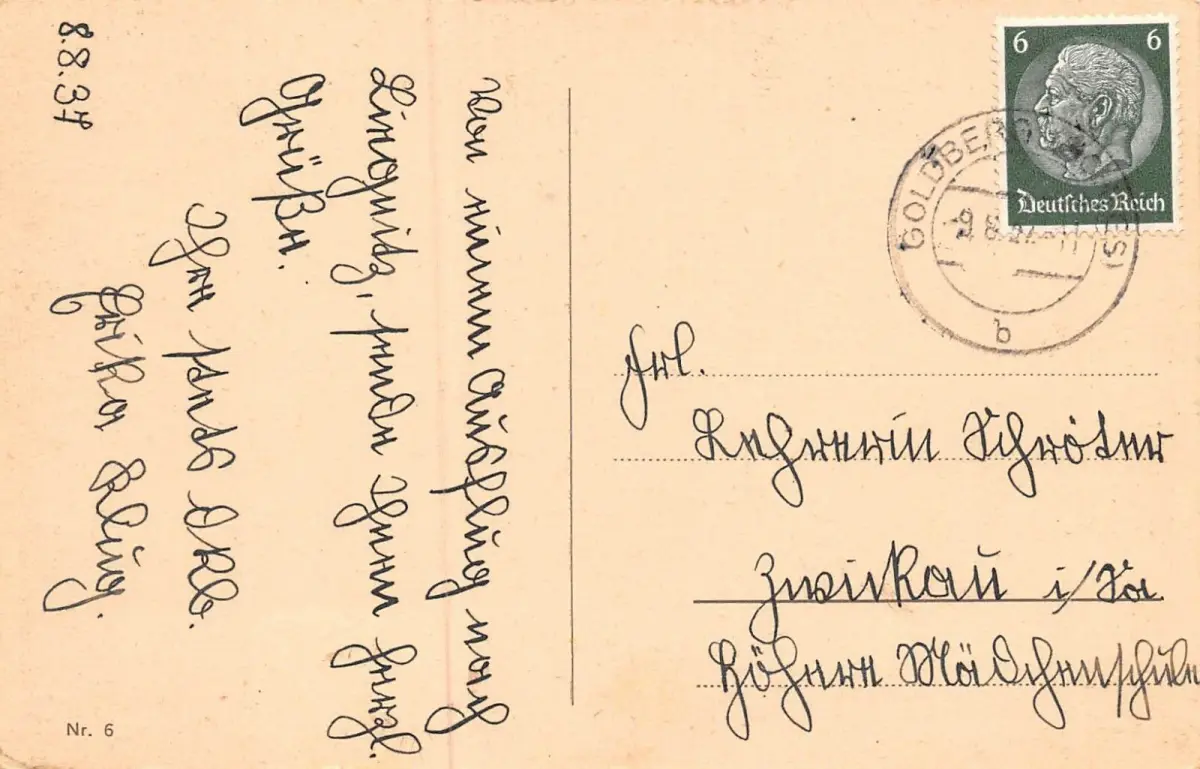 8.8.37
Von einem Ausflug nach
Liegnitz, senden Ihnen herzl.
Grüße.
Ihre
Erika Klug.
Nr. 6
6 6
Deutsches Reich
GOLDBERG
9.8.37
b
Frl.
Lehrerin Schröter
Zwickau i/Sa.
Höhere Mädchenschule